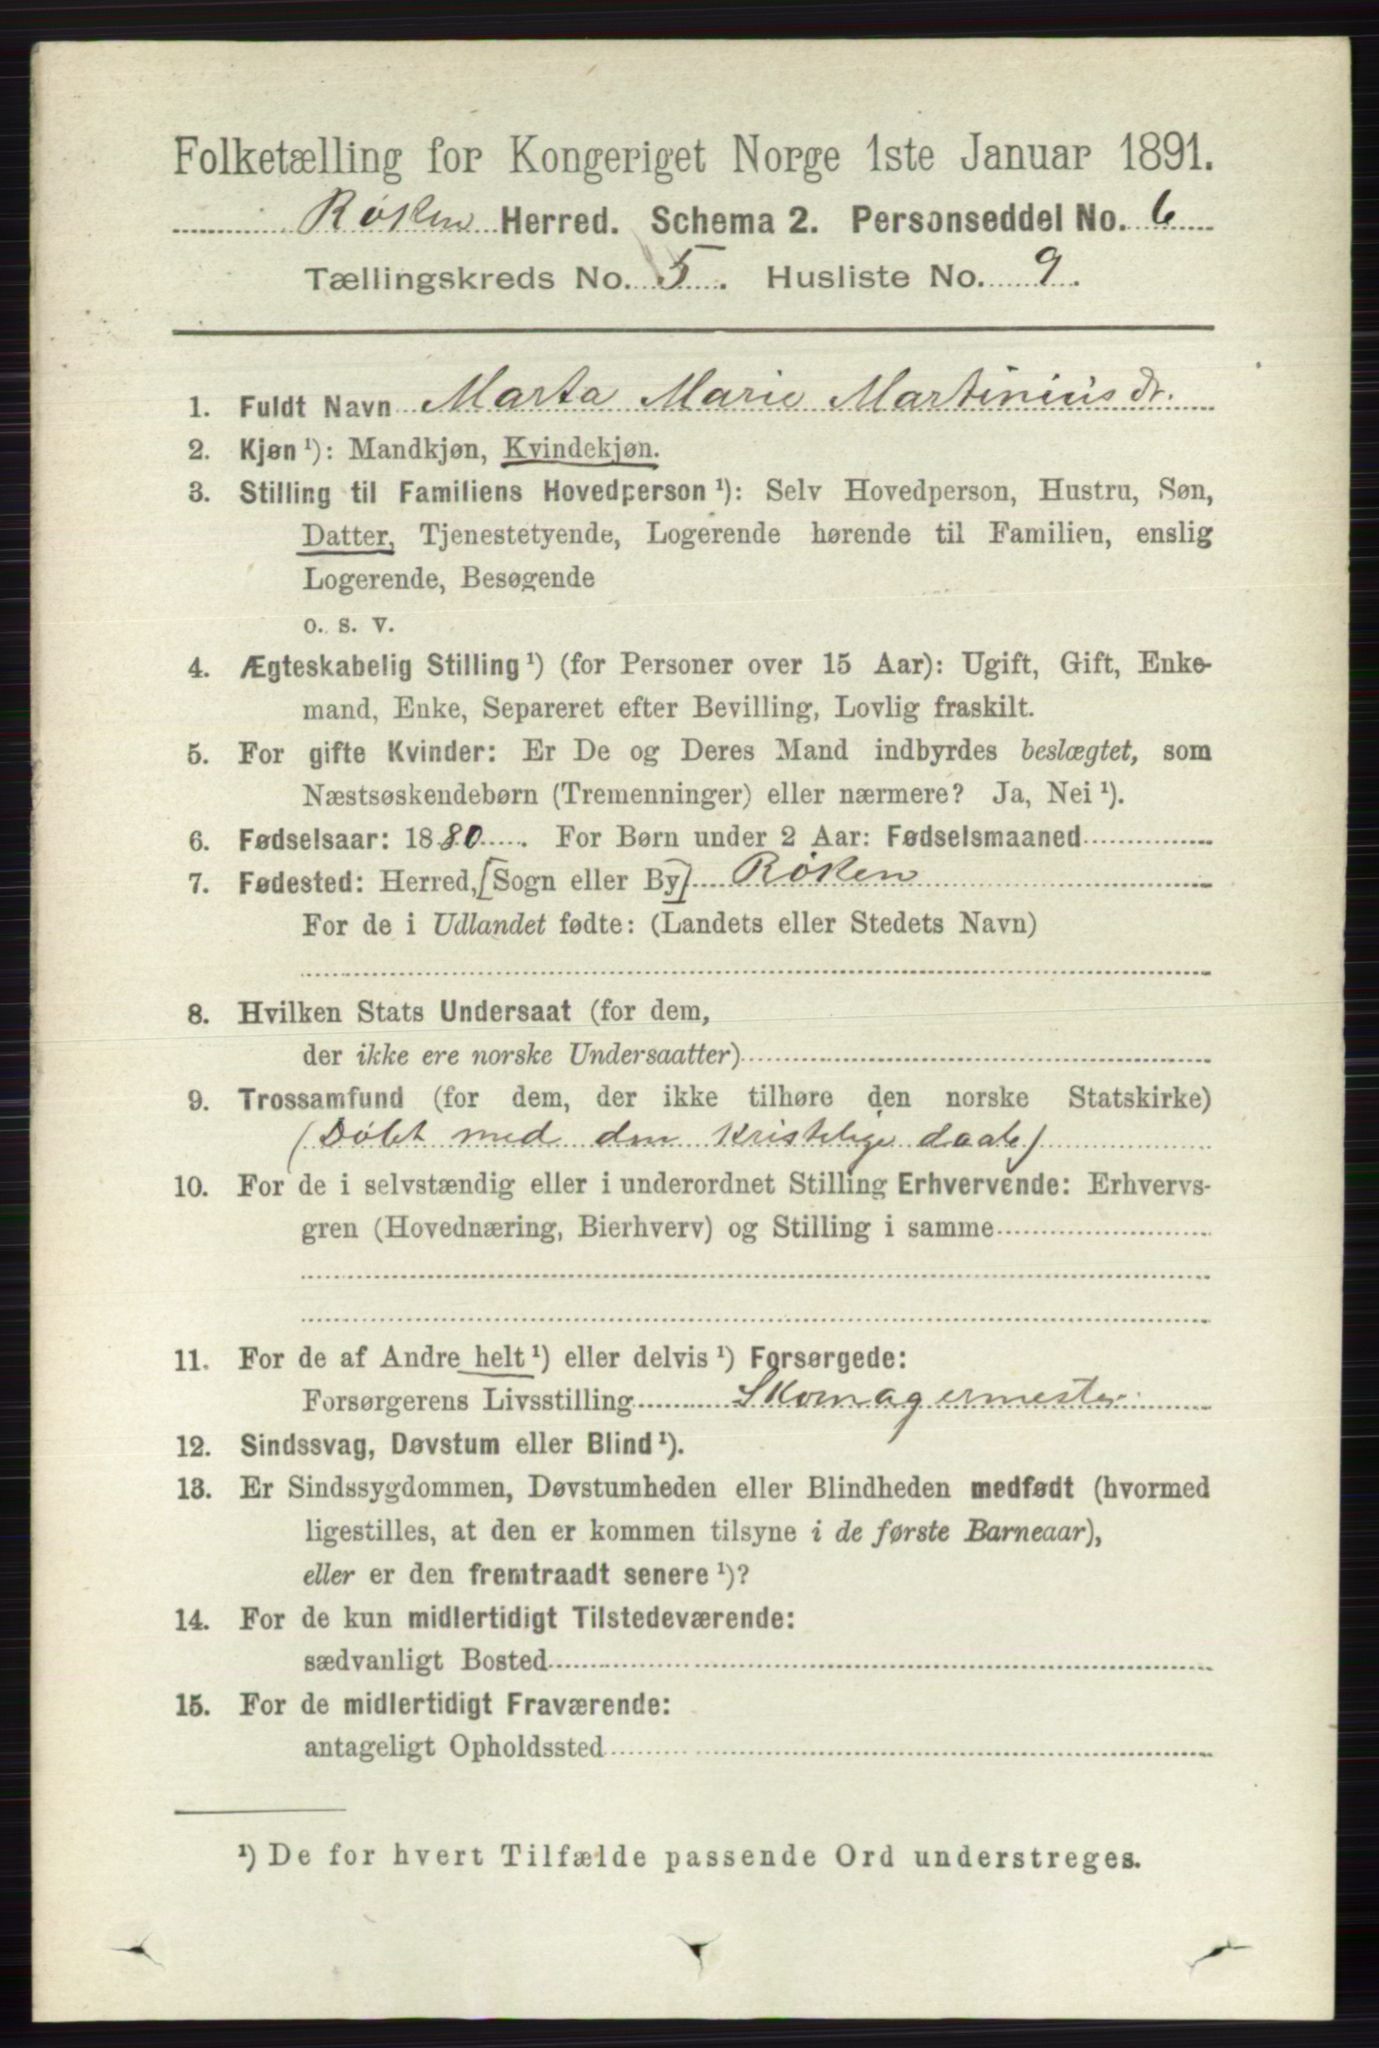 Folketælling for Kongeriget Norge 1ste Januar 1891.
Røken Herred. Schema 2. Personseddel No. 6
Tællingskreds No. 5. Husliste No. 9.
1. Fuldt Navn Marta Marie Martiniusdr.
2. Kjøn ¹): Mandkjøn, Kvindekjøn.
3. Stilling til Familiens Hovedperson ¹): Selv Hovedperson, Hustru, Søn,
Datter, Tjenestetyende, Logerende hørende til Familien, enslig
Logerende, Besøgende
o. s. v.
4. Ægteskabelig Stilling ¹) (for Personer over 15 Aar): Ugift, Gift, Enke-
mand, Enke, Separeret efter Bevilling, Lovlig fraskilt.
5. For gifte Kvinder: Er De og Deres Mand indbyrdes beslægtet, som
Næstsøskendebørn (Tremenninger) eller nærmere? Ja, Nei ¹).
6. Fødselsaar: 1880. For Børn under 2 Aar: Fødselsmaaned
7. Fødested: Herred, [Sogn eller By] Røken
For de i Udlandet fødte: (Landets eller Stedets Navn)
8. Hvilken Stats Undersaat (for dem,
der ikke ere norske Undersaatter)
9. Trossamfund (for dem, der ikke tilhøre den norske Statskirke)
(Døbt med den kristelige daab)
10. For de i selvstændig eller i underordnet Stilling Erhvervende: Erhvervs-
gren (Hovednæring, Bierhverv) og Stilling i samme
11. For de af Andre helt ¹) eller delvis ¹) Forsørgede:
Forsørgerens Livsstilling Skomagermester
12. Sindssvag, Døvstum eller Blind ¹).
13. Er Sindssygdommen, Døvstumheden eller Blindheden medfødt (hvormed
ligestilles, at den er kommen tilsyne i de første Barneaar),
eller er den fremtraadt senere ¹)?
14. For de kun midlertidigt Tilstedeværende:
sædvanligt Bosted
15. For de midlertidigt Fraværende:
antageligt Opholdssted
¹) De for hvert Tilfælde passende Ord understreges.